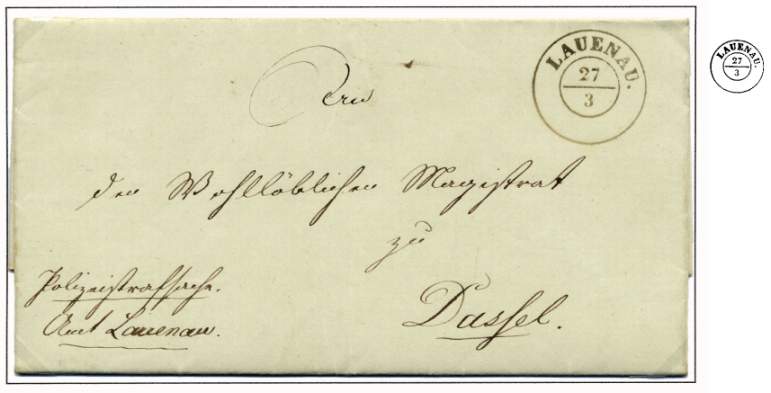 LAUENAU.
27
3
An
den Wohllöblichen Magistrat
zu
Dassel.
Polizeistrafsache.
Amt Lauenau.
LAUENAU.
27
3